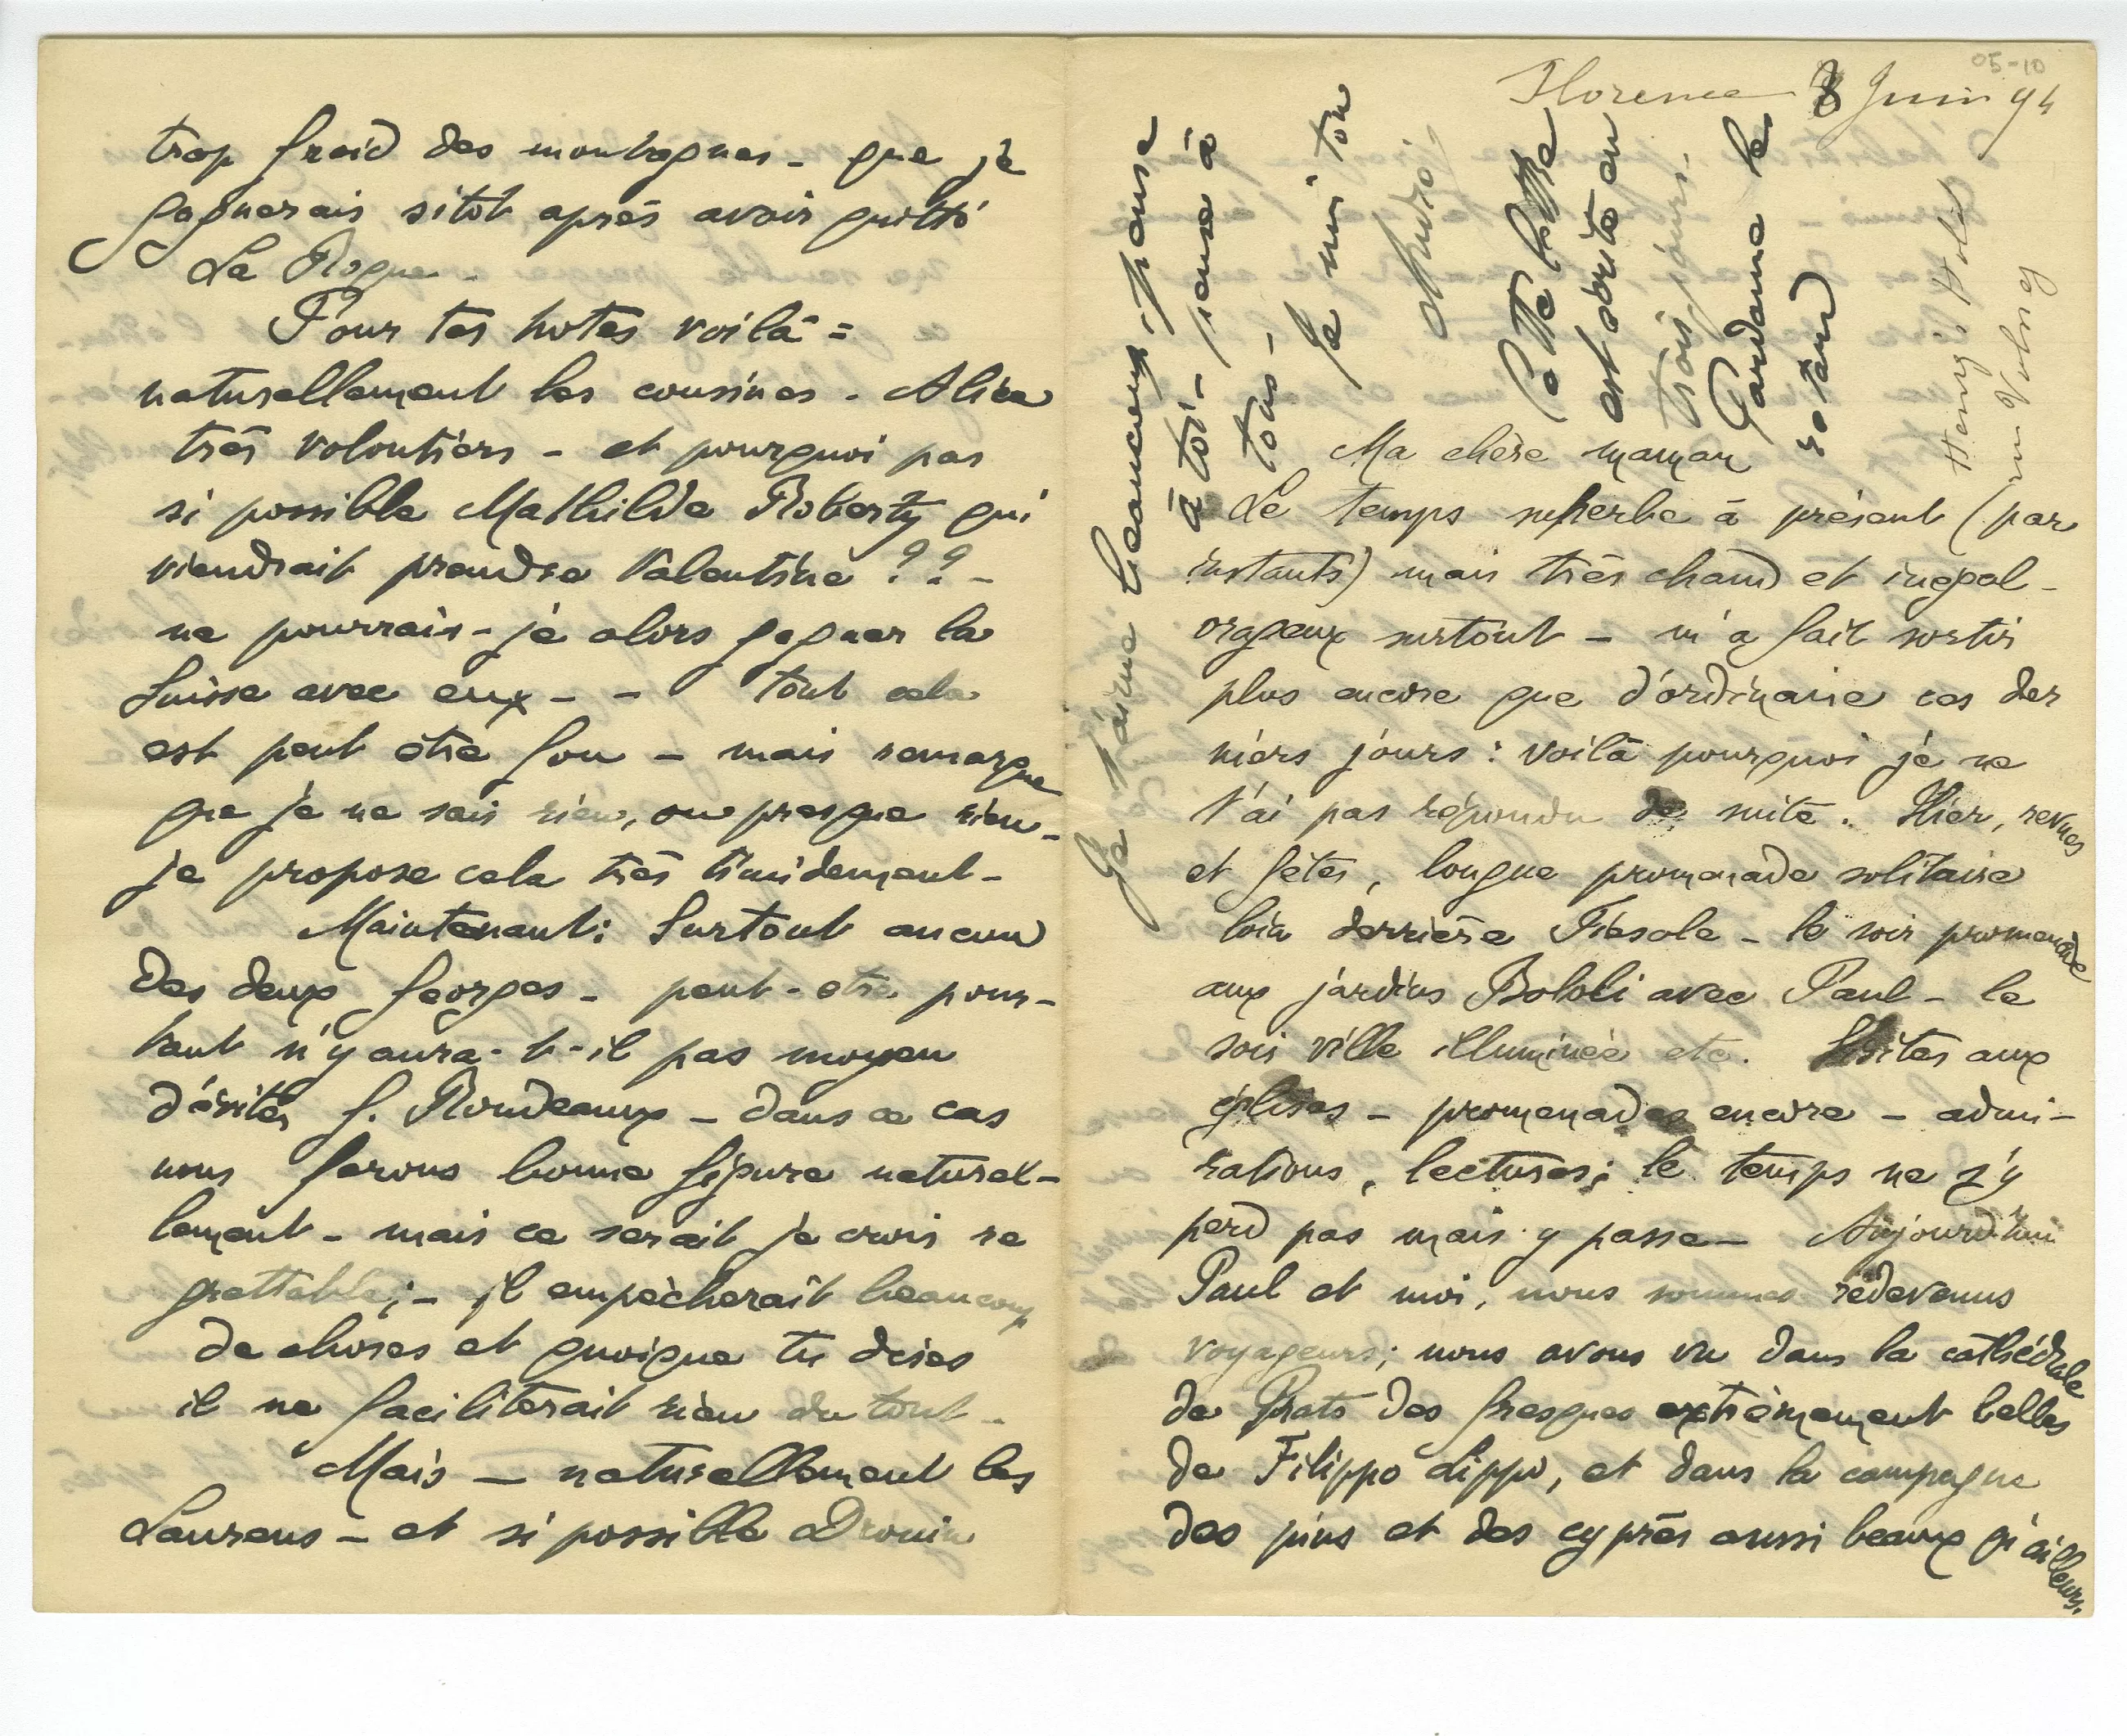 05-10
Florence 8 Juin 94
Ma chère maman
Le temps superbe à présent (par
instants) mais très chaud et inégal -
orageux surtout - m'a fait sortir
plus encore que d'ordinaire ces der
niers jours : voilà pourquoi je ne
t'ai pas répondu de suite. Hier, revues
et fêtes, longue promenade solitaire
loin derrière Fiesole - le soir promenade
aux jardins Boboli avec Paul - le
soir ville illuminée etc. Visites aux
églises - promenades encore - admi-
rations, lectures; le temps ne s'y
perd pas mais y passe - Aujourd'hui
Paul et moi, nous sommes redevenus
voyageurs; nous avons vu dans la cathédrale
de Prato des fresques extrêmement belles
de Filippo Lippi, et dans la campagne
des pins et des cyprès aussi beaux qu'ailleurs.
Je t'aime beaucoup, pense
à toi - pense à
tous -
Je suis ton
André
Cette lettre
est écrite en
trois jours -
Pardonne le
retard
trop froid des montagnes - que je
gagnerais sitot après avoir quitté
La Roque -
Pour tes hotes voilà =
naturellement les cousines - Alice
très volontiers - et pourquoi pas
si possible Mathilde Roberty qui
viendrait prendre Valentine ?? -
ne pourrais-je alors gagner la
Suisse avec eux - - tout cela
est peut être fou - mais remarque
que je ne sais rien, ou presque rien -
je propose cela très timidement -
Maintenant: Surtout aucun
des deux Georges - peut-etre pour-
tant n'y aura-t-il pas moyen
d'éviter G. Rondeaux - dans ce cas
nous ferons bonne figure naturel-
lement - mais ce serait je crois re
grettable; - il empêcherait beaucoup
de choses et quoique tu dises
il ne faciliterait rien du tout -
Mais - naturellement les
Laurens - et si possible Drouin